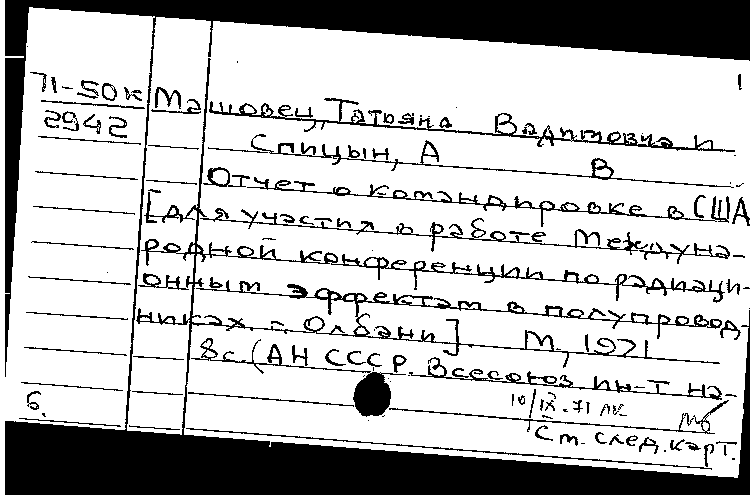 1
71-50к Машовец, Татьяна Вадимовна и
2942 Спицын, А В
Отчет о командировке в США
[для участия в работе Междуна-
родной конференции по радиаци-
онным эффектам в полупровод
никах г. Олбани]. М, 1971
8с. (АН СССР. Всесоюз ин-т на-
10/IX-71
б. См. след. карт.